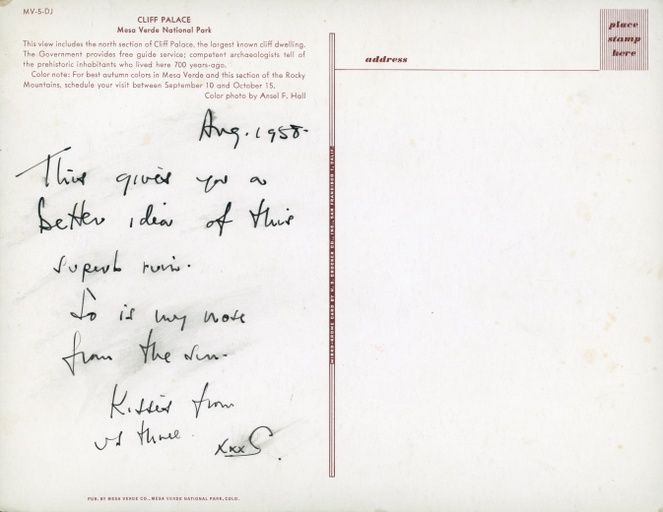 MV-5-DJ
CLIFF PALACE
Mesa Verde National Park
This view includes the north section of Cliff Palace, the largest known cliff dwelling.
The Government provides free guide service; competent archaeologists tell of
the prehistoric inhabitants who lived here 700 years-ago.
Color note: For best autumn colors in Mesa Verde and this section of the Rocky
Mountains, schedule your visit between September 10 and October 15.
Color photo by Ansel F. Hall
Aug. 1958.
This gives you a
better idea of this
superb ruin.
So is my nose
from the sun.
Kisses from
us three.
xxx S.
PUB. BY MESA VERDE CO., MESA VERDE NATIONAL PARK, COLO.
address
place
stamp
here